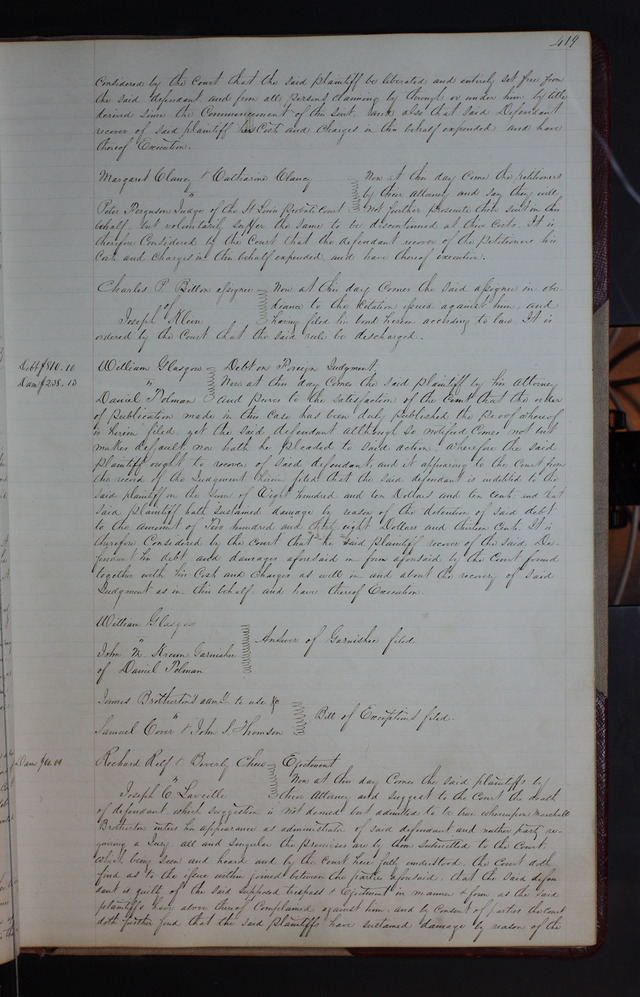 419
Considered by the Court that the said plaintiff be liberated and entirely set free from
the said defendant and from all persons claiming by through or under him by title
derived since the Commencement of this suit. and also that said Defendant
recover of said plaintiff his Cost and charges in this behalf expended and have
thereof Execution.
Margaret Clancy & Catharine Clancy
"
Peter Ferguson Judge of the St Louis Probate Court
Now at this day Come the petitioners
by their attorney and say they will
not further prosecute their suit in this
behalf, but voluntarily suffer the same to be discontinued at their Costs. It is
therefore Considered by the Court that the defendant recover of the petitioners his
Costs and Charges in this behalf expended, and have thereof execution.
Charles P. Billon assignee
of
Joseph Klein
Now at this day Comes the said assignee in obe-
dience to the Citation issued against him, and
having filed his bond herein according to law. It is
ordered by the Court that the said rule be discharged.
Debt $810.10
Dam $238.13
William Glasgow
"
Daniel Tolman
Debt on Foreign Judgment.
Now at this day Comes the said plaintiff by his Attorney
and proves to the satisfaction of the Court that the order
of publication made in this Case has been duly published the proof whereof
is herein filed. yet the said defendant although so notified Comes not but
makes default, nor hath he pleaded to said action. Wherefore the said
plaintiff ought to recover of said defendant, and it appearing to the Court from
the record of the Judgment herein filed that the said defendant is indebted to the
said plaintiff in the Sum of Eight hundred and ten Dollars and ten cents and that
said plaintiff hath sustained damage by reason of the detention of said debt
to the amount of Two hundred and thirty eight Dollars and thirteen Cents. It is
therefore Considered by the Court that the said plaintiff recover of the said De-
fendant his debt and damages aforesaid in form aforesaid by the Court found
together with his Cost and Charges as well in and about the recovery of said
Judgment as in this behalf, and have thereof Execution.
William Glasgow
"
John M. Krum Garnishee
of Daniel Tolman
Answer of Garnishee filed.
James Brotherton's adm. to use &c
"
Samuel Conn & John S. Thomson
Bill of Exceptions filed.
Dam $
Richard Relf & Beverly Chew
"
Joseph C. Laveille
Ejectment
Now at this day Come the said plaintiffs by
their Attorney and suggest to the Court the death
of defendant which suggestion is not denied but admitted to be true whereupon Marshall
Brotherton enters his appearance as administrator of said defendant and neither party re-
quiring a Jury. all and singular the premises are by them submitted to the Court.
Which being seen and heard and by the Court here fully understood, the Court doth
find as to the issue within joined between the parties aforesaid. that the said defen-
dant is guilty of the said supposed trespass & Ejectment in manner & form as the said
plaintiffs have above thereof Complained against him. and by Consent of parties the Court
doth further find that the said plaintiffs have sustained damage by reason of the